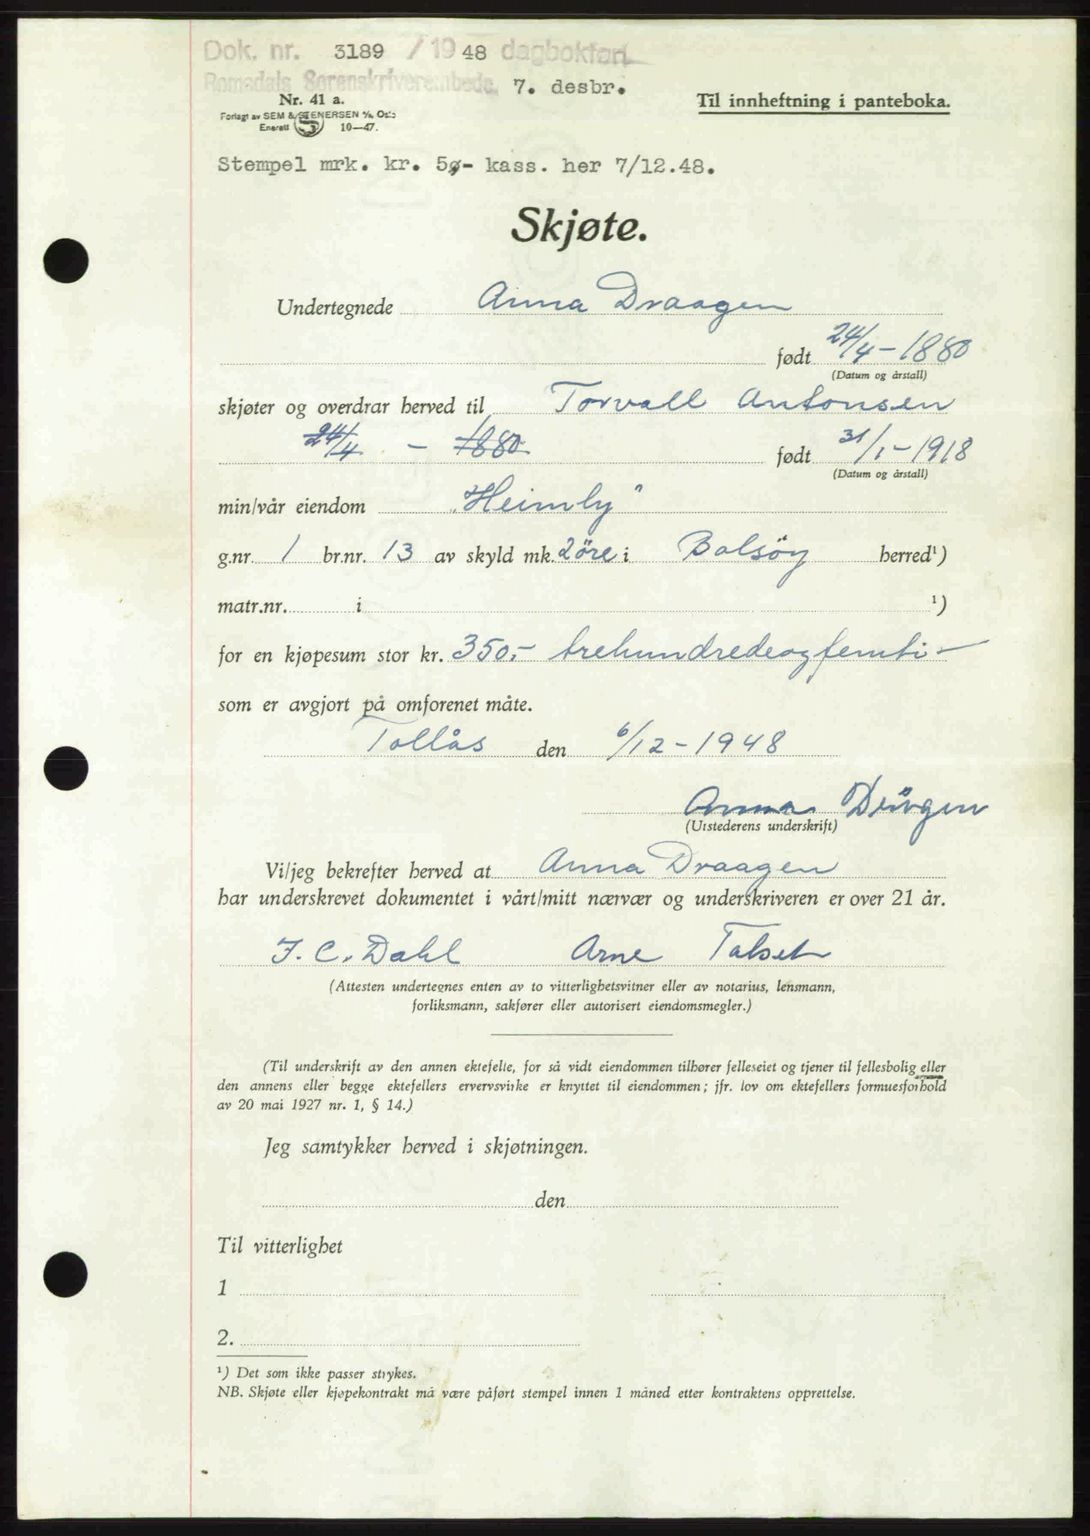 Dok. nr. 3189 / 1948 dagbokført
Romsdals Sorenskriverembede. 7. desbr.
Nr. 41 a.
Til innheftning i panteboka.
Forlagt av SEM & STENERSEN A/S, Oslo
Enerett 10—47.
Stempel mrk. kr. 5,- kass. her 7/12.48.
Skjøte.
Undertegnede Anna Draagen
født 24/4 - 1880
(Datum og årstall)
skjøter og overdrar herved til Torvall Antonsen
24/4 - 1880 født 31/1 - 1918
(Datum og årstall)
min/vår eiendom "Heimly"
g.nr. 1 br.nr. 13 av skyld mk. 2 öre i Bolsöy herred¹)
matr.nr. i ¹)
for en kjøpesum stor kr. 350,- trehundredeogfemti -
som er avgjort på omforenet måte.
Tollås den 6/12 - 1948
Anna
(Utstederens underskrift)
Vi/jeg bekrefter herved at Anna Draagen
har underskrevet dokumentet i vårt/mitt nærvær og underskriveren er over 21 år.
J. C. Dahl Arne Talset
(Attesten undertegnes enten av to vitterlighetsvitner eller av notarius, lensmann,
forliksmann, sakfører eller autorisert eiendomsmegler.)
(Til underskrift av den annen ektefelle, for så vidt eiendommen tilhører felleseiet og tjener til fellesbolig eller
den annens eller begge ektefellers ervervsvirke er knyttet til eiendommen; jfr. lov om ektefellers formuesforhold
av 20 mai 1927 nr. 1, § 14.)
Jeg samtykker herved i skjøtningen.
den
Til vitterlighet
1
2.
¹) Det som ikke passer strykes.
NB. Skjøte eller kjøpekontrakt må være påført stempel innen 1 måned etter kontraktens opprettelse.